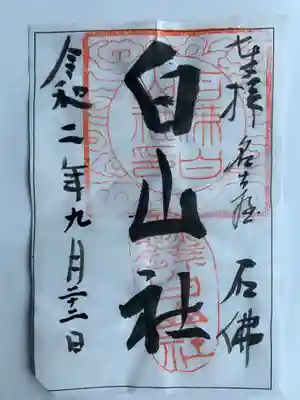 奉拝 名古屋 石佛
白山社
令和二年九月二十二日